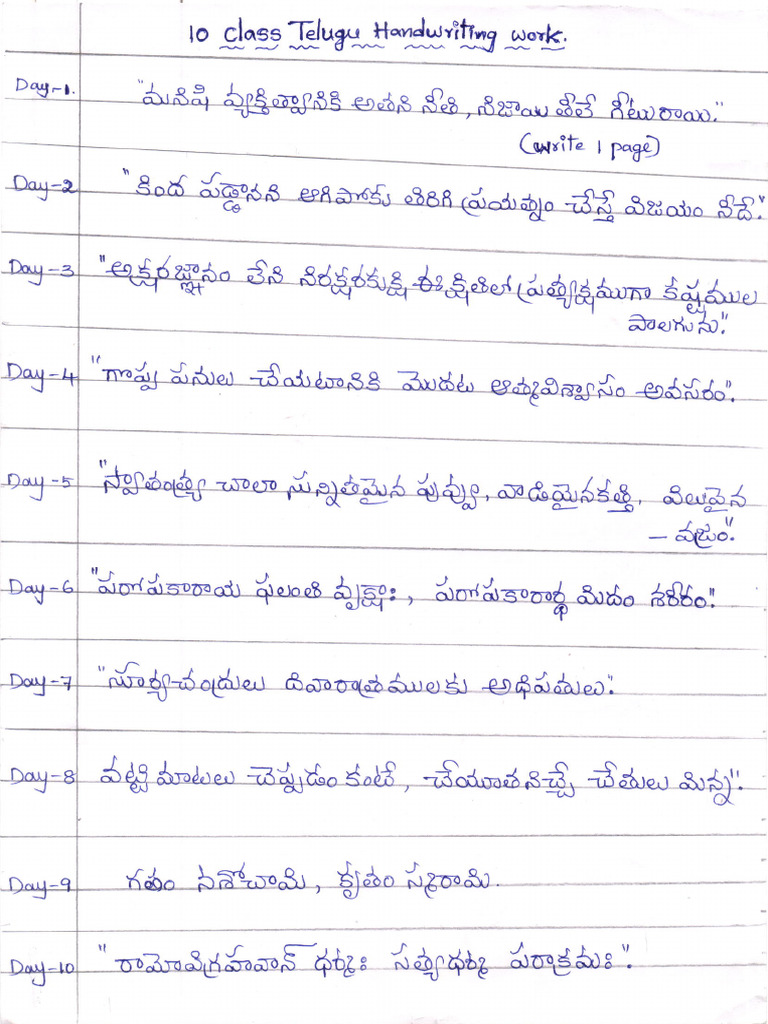 10 class Telugu Handwriting work.
Day-1. "మనిషి వ్యక్తిత్వానికి అతని నీతి, నిజాయితీలే గీటురాయి."
(write 1 page)
Day-2 "కింద పడ్డానని ఆగిపోకు తిరిగి ప్రయత్నం చేస్తే విజయం నీదే."
Day-3 "అక్షరజ్ఞానం లేని నిరక్షరకుక్షి ఈ క్షితిలో ప్రత్యక్షముగా కష్టముల
పాలగును."
Day-4 "గొప్ప పనులు చేయటానికి మొదట ఆత్మవిశ్వాసం అవసరం".
Day-5 "స్వాతంత్ర్య చాలా సున్నితమైన పువ్వు, వాడియైనకత్తి, విలువైన
- వజ్రం".
Day-6 "పరోపకారాయ ఫలంతి వృక్షాః, పరోపకారార్థ మిదం శరీరం."
Day-7 "సూర్యచంద్రులు దివారాత్రములకు అధిపతులు".
Day-8 వట్టి మాటలు చెప్పడం కంటే, చేయూతనిచ్చే చేతులు మిన్న".
Day-9 గతం నశోచామి, కృతం స్మరామి.
Day-10 "రామోవిగ్రహవాన్ ధర్మః సత్యధర్మ పరాక్రమః".